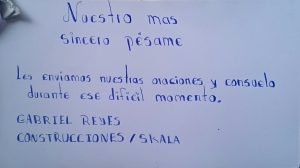 Nuestro mas
sincero pésame
Les enviamos nuestras oraciones y consuelo
durante ese difícil momento.
GABRIEL REYES
CONSTRUCCIONES / SKALA